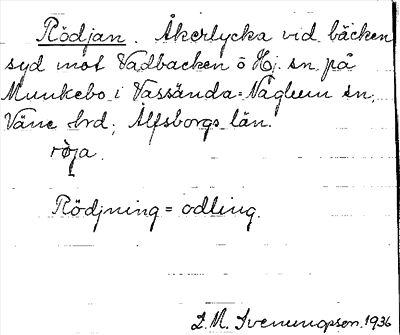 Rödjan. Åkerlycka vid bäcken
syd mot Vadbacken ö Hj. sn på
Munkebo i Vassända=Naglum sn,
Väne hrd; Älfsborgs län.
röja.
Rödjning = odling.
L.M. Svenungsson. 1936